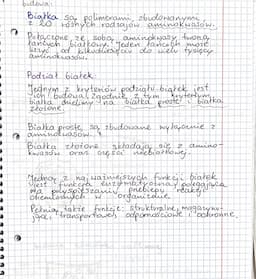 budowa:
Białka są polimerami, zbudowanymi
z 20 różnych rodzajów aminokwasów.
Połączone ze sobą aminokwasy tworzą
łańcuch białkowy. Jeden łańcuch może
liczyć od kilkudziesięciu do wielu tysięcy
aminokwasów.
Podział białek
Jednym z kryteriów podziału białek jest
ich budowa, zgodnie z tym kryterium
białka dzielimy na białka proste i białka
złożone.
Białka proste są zbudowane wyłącznie z
aminokwasów.
Białka złożone składają się z amino-
kwasów oraz części niebiałkowej.
Jedną z najważniejszych funkcji białek
jest funkcja enzymatyczna, polegająca
na przyspieszaniu przebiegu reakcji
chemicznych w organizmie.
Pełnią także funkcje: strukturalne, magazynu-
jące, transportowe, odpornościowe i ochronne.